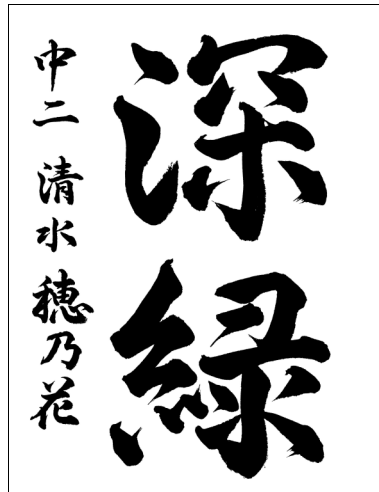 深緑
中二 清水穂乃花